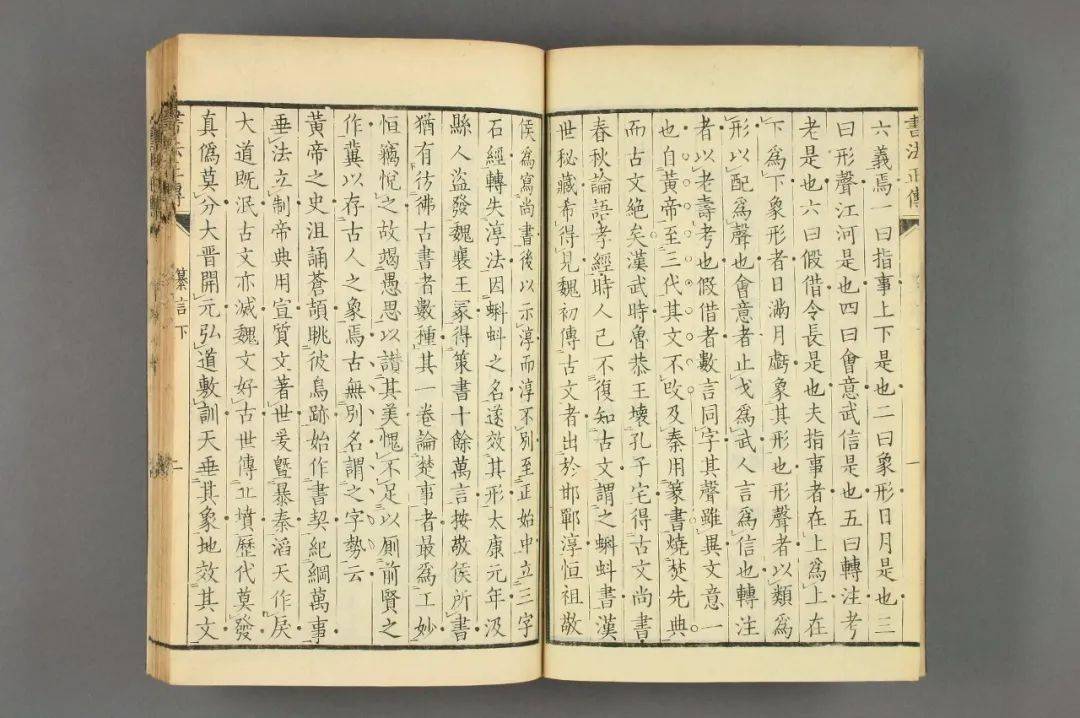 書法正傳
一
六義焉一曰指事上下是也二曰象形日月是也三
曰形聲江河是也四曰會意武信是也五曰轉注考
老是也六曰假借令長是也夫指事者在上爲上在
下爲下象形者日滿月虧象其形也形聲者以類爲
形以配爲聲也會意者止戈爲武人言爲信也轉注
者以老壽考也假借者數言同字其聲雖異文意一
也自黃帝至三代其文不改及秦用篆書燒焚先典
而古文絶矣漢武時魯恭王壞孔子宅得古文尚書
春秋論語孝經時人已不復知古文謂之蝌蚪書漢
世秘藏希得見魏初傳古文者出於邯鄲淳恒祖敬
侯爲寫尚書後以示淳而淳不別至正始中立三字
石經轉失淳法因蝌蚪之名遂效其形太康元年汲
縣人盜發魏襄王冢得策書十餘萬言按敬侯所書
猶有彷彿古書者數種其一卷論楚事者最爲工妙
恒竊悅之故竭愚思以讚其美愧不足以厠前賢之
作冀以存古人之象焉古無別名謂之字勢云
黃帝之史沮誦蒼頡眺彼鳥跡始作書契紀綱萬事
垂法立制帝典用宣質文著世爰曁暴秦滔天作戾
大道既泯古文亦滅魏文好古世傳丘墳歷代莫發
真僞莫分大晋開元弘道敷訓天垂其象地效其文
書法正傳
纂言下
二